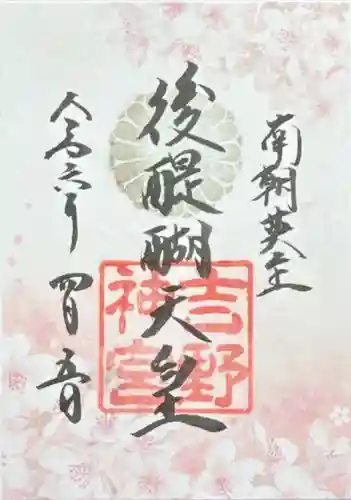 南朝英主
後醍醐天皇
吉野神宮
令和六年
四月五日